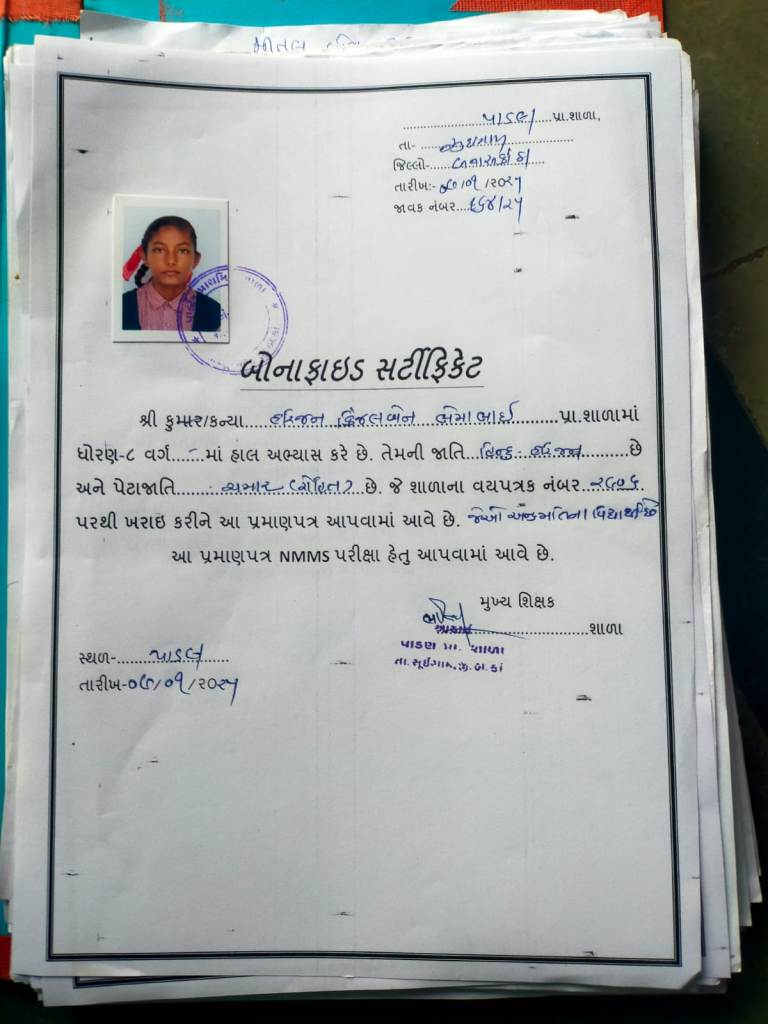 પાડણ પ્રા.શાળા,
તા- સુઇગામ
જિલ્લો- બનાસકાંઠા
તારીખ:- ૦૭/૦૧/૨૦૨૫
જાવક નંબર
બોનાફાઇડ સર્ટીફિકેટ
શ્રી કુમાર/કન્યા હરિજન કિંજલબેન ખેમાભાઈ પ્રા.શાળામાં
ધોરણ-૮ વર્ગ - માં હાલ અભ્યાસ કરે છે. તેમની જાતિ હિન્દુ હરિજન છે
અને પેટાજાતિ ચમાર (રોહિત) છે. જે શાળાના વયપત્રક નંબર ૨૬૦૬
પરથી ખરાઇ કરીને આ પ્રમાણપત્ર આપવામાં આવે છે. જેઓ અનુ.જાતિના વિદ્યાર્થી છે
આ પ્રમાણપત્ર NMMS પરીક્ષા હેતુ આપવામાં આવે છે.
મુખ્ય શિક્ષક
આચાર્ય શાળા
પાડણ પ્રા. શાળા
તા.સૂઈગામ, જી.બ.કાં
સ્થળ- પાડણ
તારીખ-૦૭/૦૧/૨૦૨૫